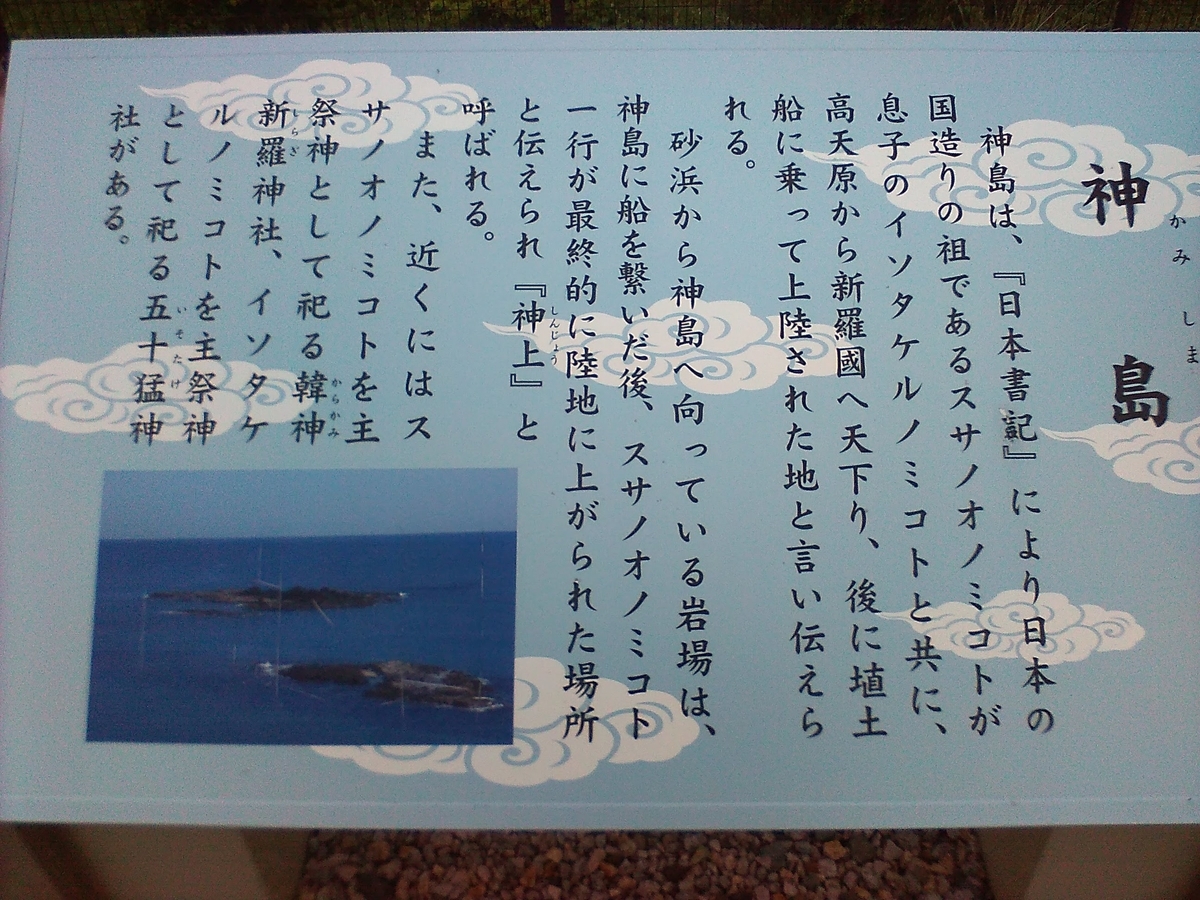 神島
かみしま
神島は、『日本書記』により日本の
国造りの祖であるスサノオノミコトが
息子のイソタケルノミコトと共に、
高天原から新羅國へ天下り、後に埴土
船に乗って上陸された地と言い伝えら
れる。
砂浜から神島へ向っている岩場は、
神島に船を繋いだ後、スサノオノミコト
一行が最終的に陸地に上がられた場所
と伝えられ『神上』と
しんじょう
呼ばれる。
また、近くにはス
サノオノミコトを主
祭神として祀る韓神
からかみ
新羅神社、イソタケ
しらぎ
ルノミコトを主祭神
として祀る五十猛神
いそたけ
社がある。